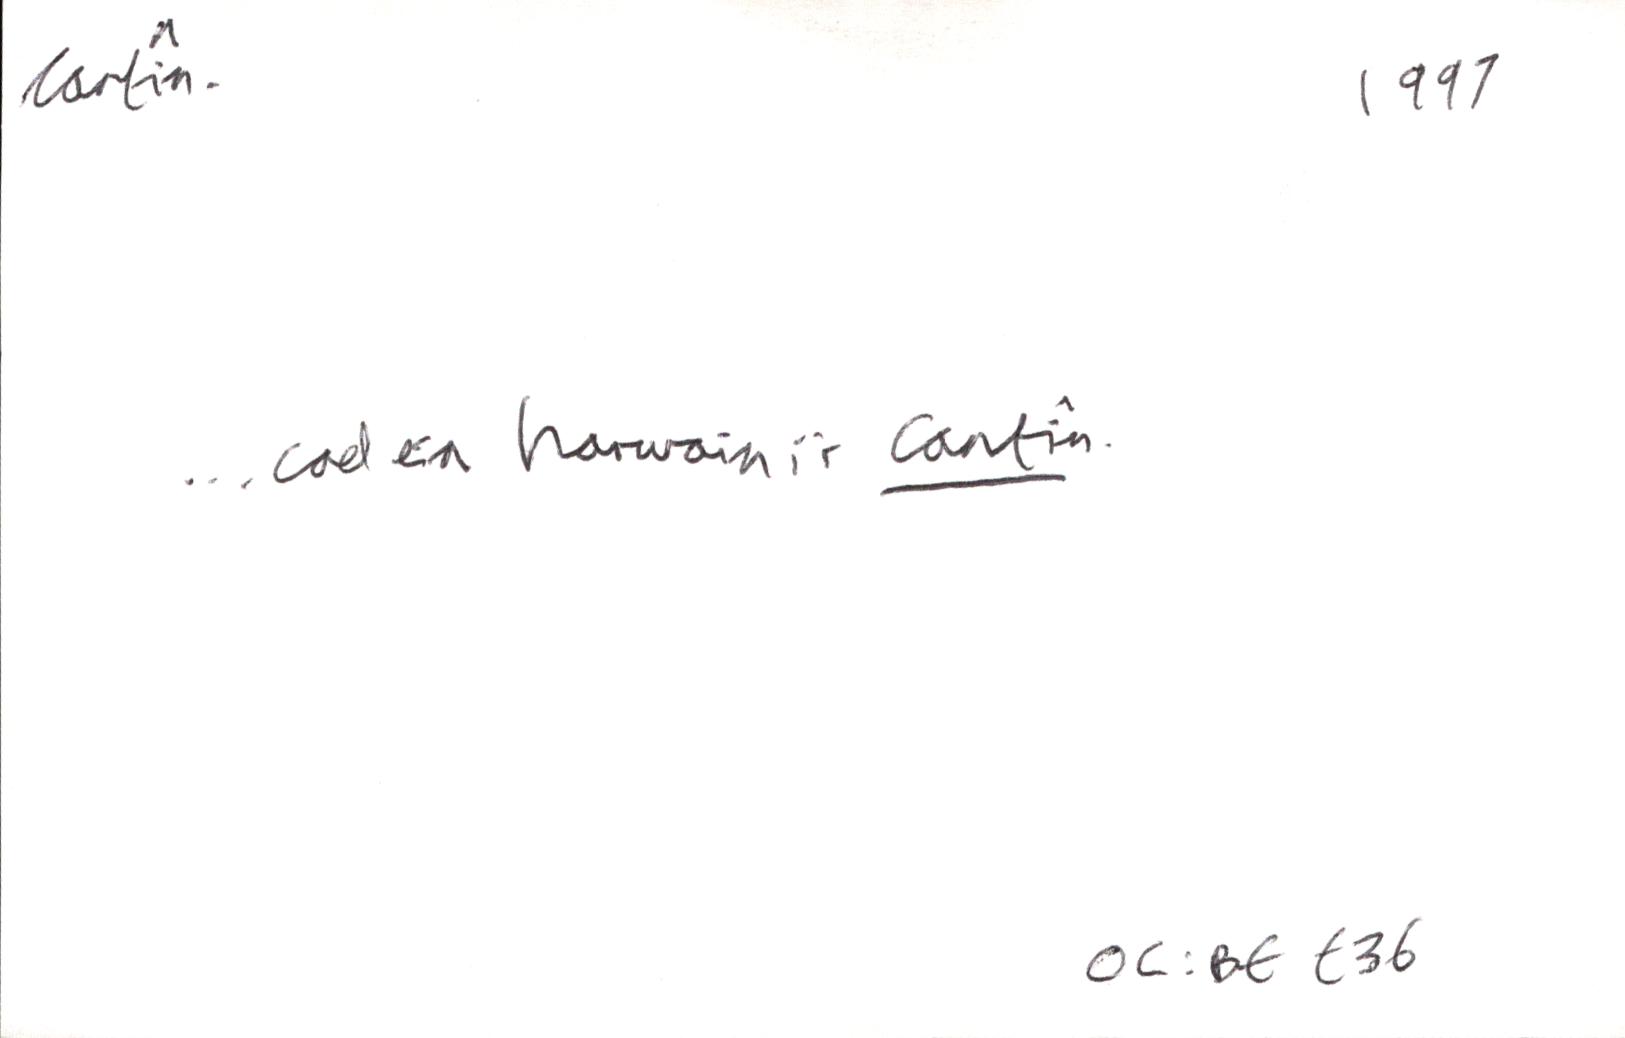 Cantîn.
1997
... cael ein harwain i'r Cantîn.
OC: BE t36